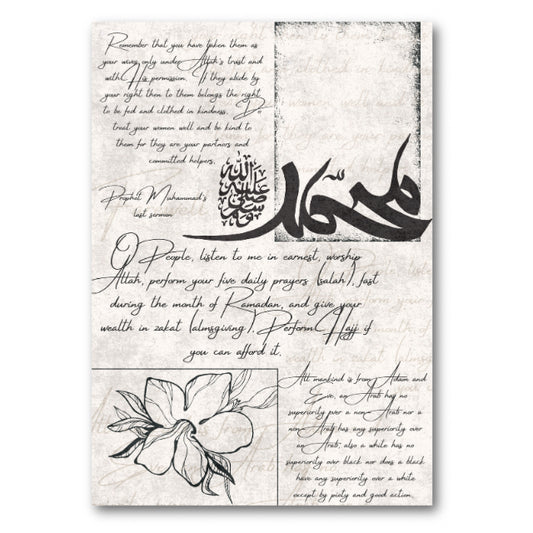 Remember that you have taken them as
your wives only under Allah's trust and
with His permission. If they abide by
your right then to them belongs the right
to be fed and clothed in kindness. Do
treat your women well and be kind to
them for they are your partners and
committed helpers.
Prophet Muhammad's
last sermon
صلى الله عليه وسلم
محمد
O People, listen to me in earnest, worship
Allah, perform your five daily prayers (salah), fast
during the month of Ramadan, and give your
wealth in zakat (almsgiving). Perform Hajj if
you can afford it.
All mankind is from Adam and
Eve, an Arab has no
superiority over a non-Arab nor a
non-Arab has any superiority over
an Arab; also a white has no
superiority over black nor does a black
have any superiority over a white
except by piety and good action.